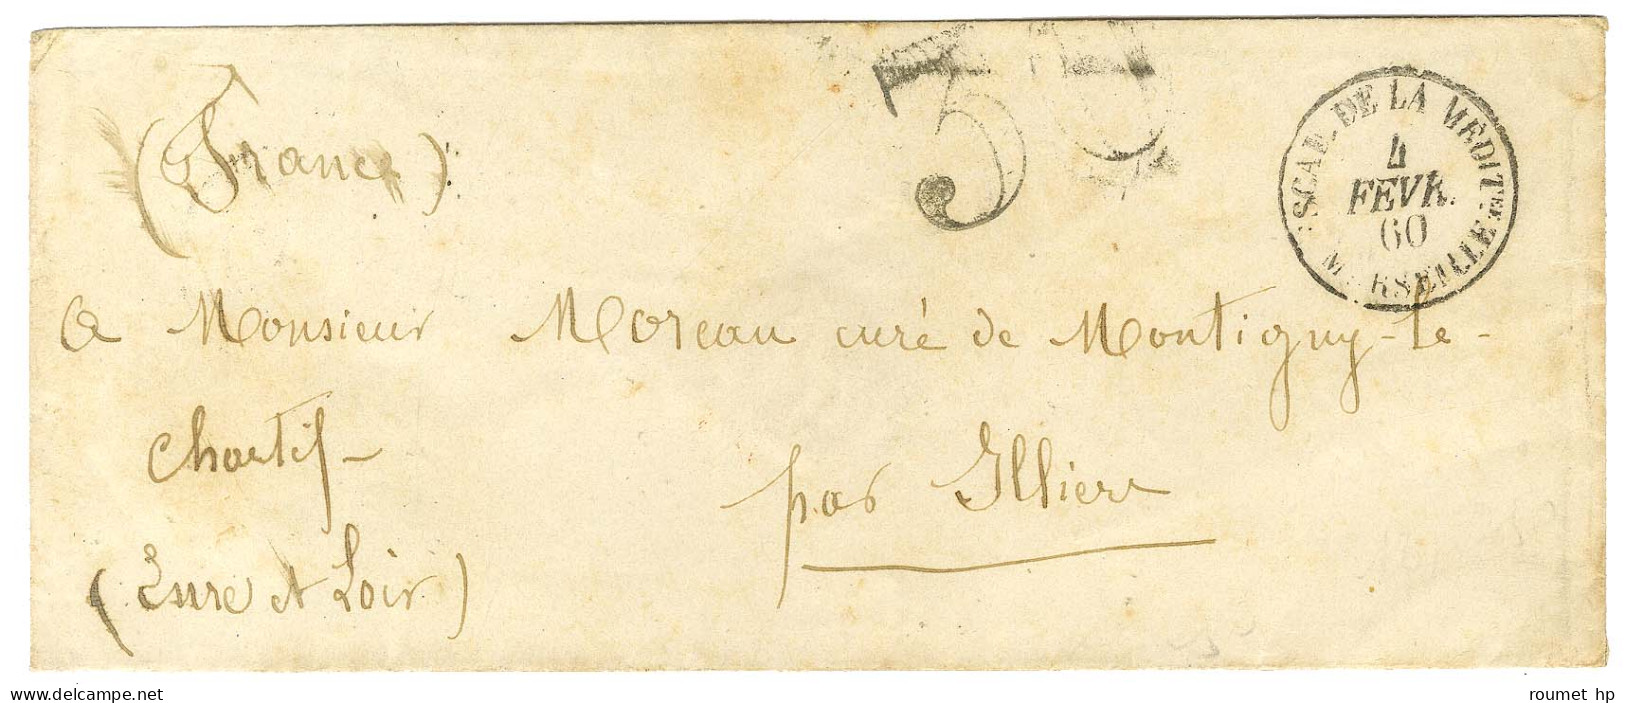 30
ESCAD. DE LA MÉDITEE
4
FEVR.
60
MARSEILLE
(France)
A Monsieur Moreau curé de Montigny-le-
Chartif-
par Illiers
(Eure et Loir)
www.delcampe.net
roumet hp